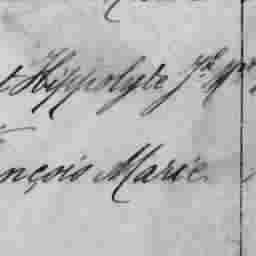 t Hippolyte
nçois Marie